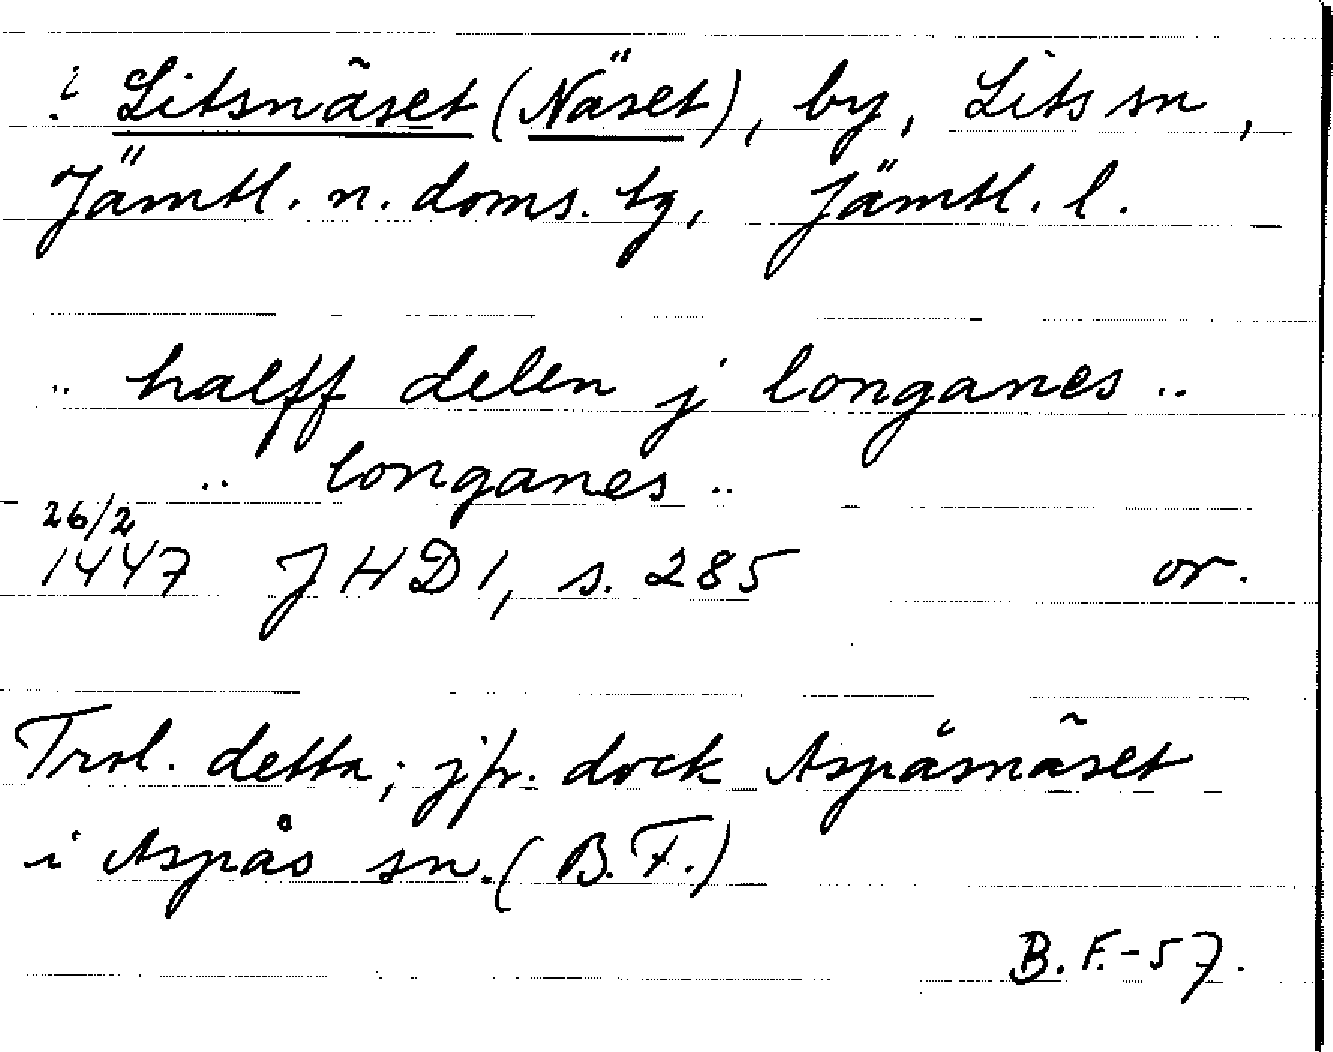 ? Litsnäset (Näset), by, Lits sn,
Jämtl. n. doms. tg, Jämtl. l.
.. halff delen j longanes ..
.. longanes ..
26/2
1447 JHD 1, s. 285 or.
Trol. detta; jfr. dock Aspåsnäset
i Aspås sn. (B.F.)
B.F.-57.